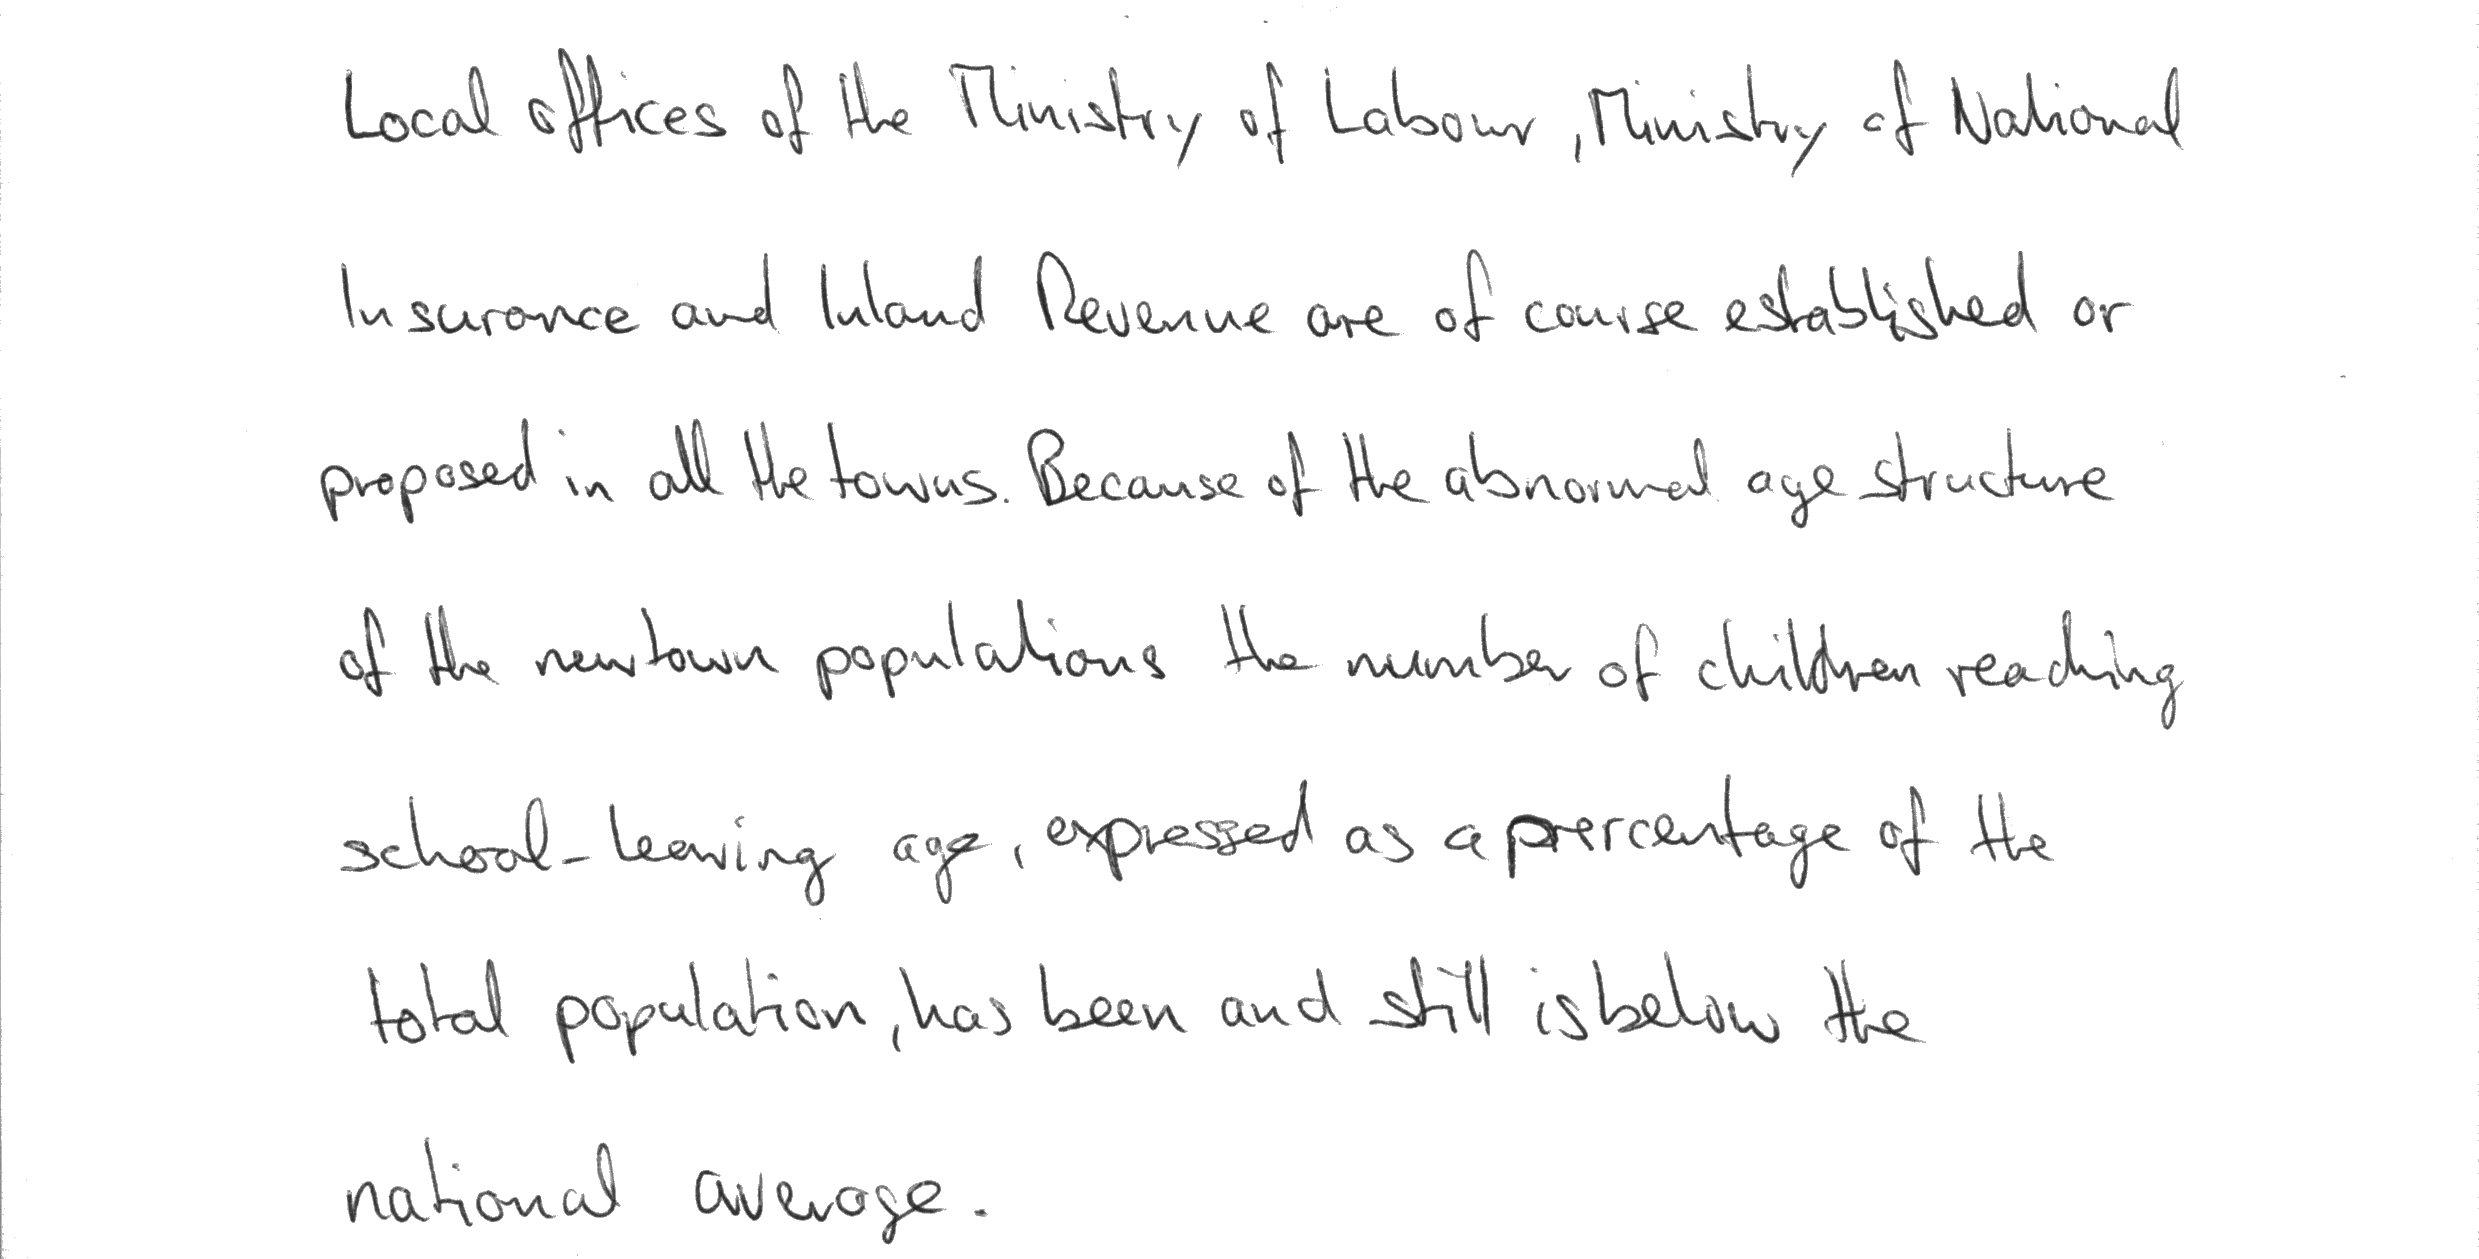 Local offices of the Ministry of Labour, Ministry of National
Insurance and Inland Revenue are of course established or
proposed in all the towns. Because of the abnormal age structure
of the new town populations the number of children reaching
school-leaving age, expressed as a percentage of the
total population, has been and still is below the
national average.